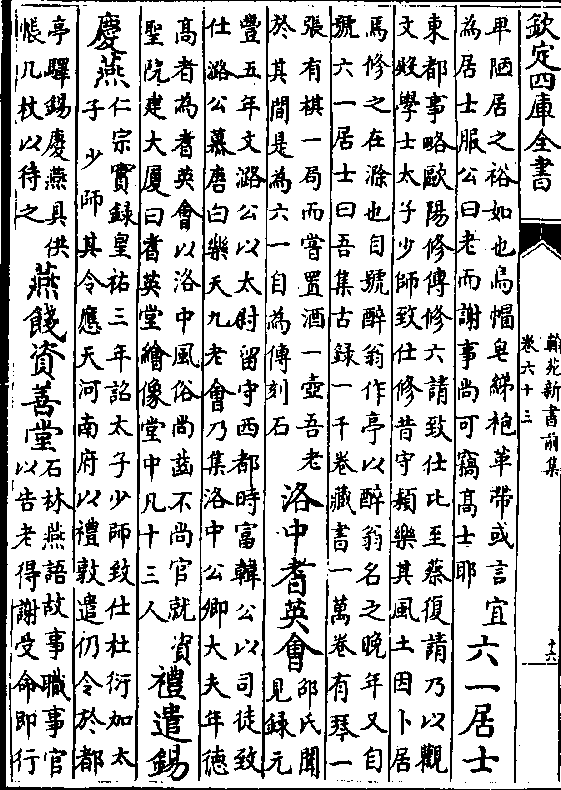 欽定四庫全書
翰苑新書前集
卷六十三
十六
卑陋居之裕如也烏帽皂綈袍革帶或言宜
為居士服公曰老而謝事尚可竊髙士耶
六一居士
東都事略歐陽修傳修六請致仕比至蔡復請乃以觀
文殿學士太子少師致仕修昔守潁樂其風土因卜居
焉修之在滁也自號醉翁作亭以醉翁名之晚年又自
號六一居士曰吾集古録一千卷藏書一萬卷有琴一
張有棋一局而嘗置酒一壺吾老
於其間是為六一自為傳刻石
洛中耆英會
邵氏聞
見録元
豐五年文潞公以太尉留守西都時富韓公以司徒致
仕潞公慕唐白樂天九老會乃集洛中公卿大夫年德
髙者為耆英會以洛中風俗尚齒不尚官就資
聖院建大厦曰耆英堂繪像堂中凡十三人
禮遣錫
慶燕
仁宗實録皇祐三年詔太子少師致仕杜衍加太
子少師其令應天河南府以禮敦遣仍令於都
亭驛錫慶燕具供
帳几杖以待之
燕餞資善堂
石林燕語故事職事官
以告老得謝受命即行